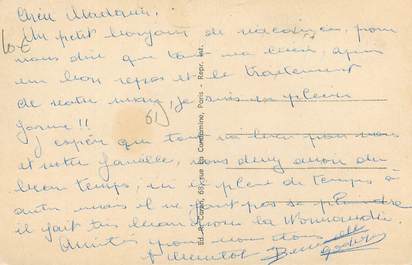 Chère Madame.
Un petit bonjour de vacances, pour
vous dire que tout va bien, après
un bon repos et le traitement
de notre, je suis en pleine
forme!!
J'espère que tout va bien pour vous
et votre famille, nous deux avons du
beau temps, un peu de temps à
autre mais il ne faut pas se plaindre
il fait très beau dans la Normandie.
Amitiés pour vous tous
A bientôt
10€
61
Ed. A. Carpin, 68, rue La Condamine, Paris - Repr. int.